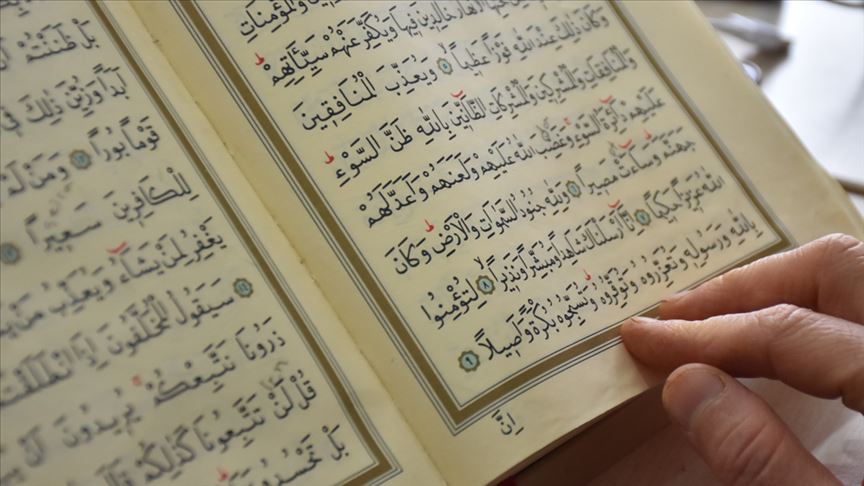 وَالْمُؤْمِنَاتِ
الْاَنْهَارُ خَالِدِينَ فِيهَا وَيُكَفِّرَ عَنْهُمْ سَيِّئَاتِهِمْ
وَكَانَ ذٰلِكَ عِنْدَ اللّٰهِ فَوْزاً عَظِيماً ٥ وَيُعَذِّبَ الْمُنَافِقِينَ
وَالْمُنَافِقَاتِ وَالْمُشْرِكِينَ وَالْمُشْرِكَاتِ الظَّٓانِّينَ بِاللّٰهِ ظَنَّ السَّوْءِ
عَلَيْهِمْ دَٓائِرَةُ السَّوْءِ وَغَضِبَ اللّٰهُ عَلَيْهِمْ وَلَعَنَهُمْ وَاَعَدَّ لَهُمْ
جَهَنَّمَ وَسَٓاءَتْ مَصِيراً ٦ وَلِلّٰهِ جُنُودُ السَّمٰوَاتِ وَالْاَرْضِ وَكَانَ
اللّٰهُ عَزِيزاً حَكِيماً ٧ اِنَّٓا اَرْسَلْنَاكَ شَاهِداً وَمُبَشِّراً وَنَذِيراً ٨ لِتُؤْمِنُوا
بِاللّٰهِ وَرَسُولِهِ وَتُعَزِّرُوهُ وَتُوَقِّرُوهُ وَتُسَبِّحُوهُ بُكْرَةً وَاَصِيلاً ٩
اِنَّ
بَلْ ظَنَنْتُمْ
اَبَداً وَزُيِّنَ ذٰلِكَ فِي
قَوْماً بُوراً ١٢ وَمَنْ لَمْ
لِلْكَافِرِينَ سَعِيراً ١٣
يَغْفِرُ لِمَنْ يَشَٓاءُ وَيُعَذِّبُ مَنْ
١٤ سَيَقُولُ الْمُخَلَّفُونَ اِذَا انْطَلَقْتُمْ
ذَرُونَا نَتَّبِعْكُمْ يُرِيدُونَ اَنْ
قُلْ لَنْ تَتَّبِعُونَا كَذٰلِكُمْ قَالَ
بَلْ تَحْسُدُونَنَا